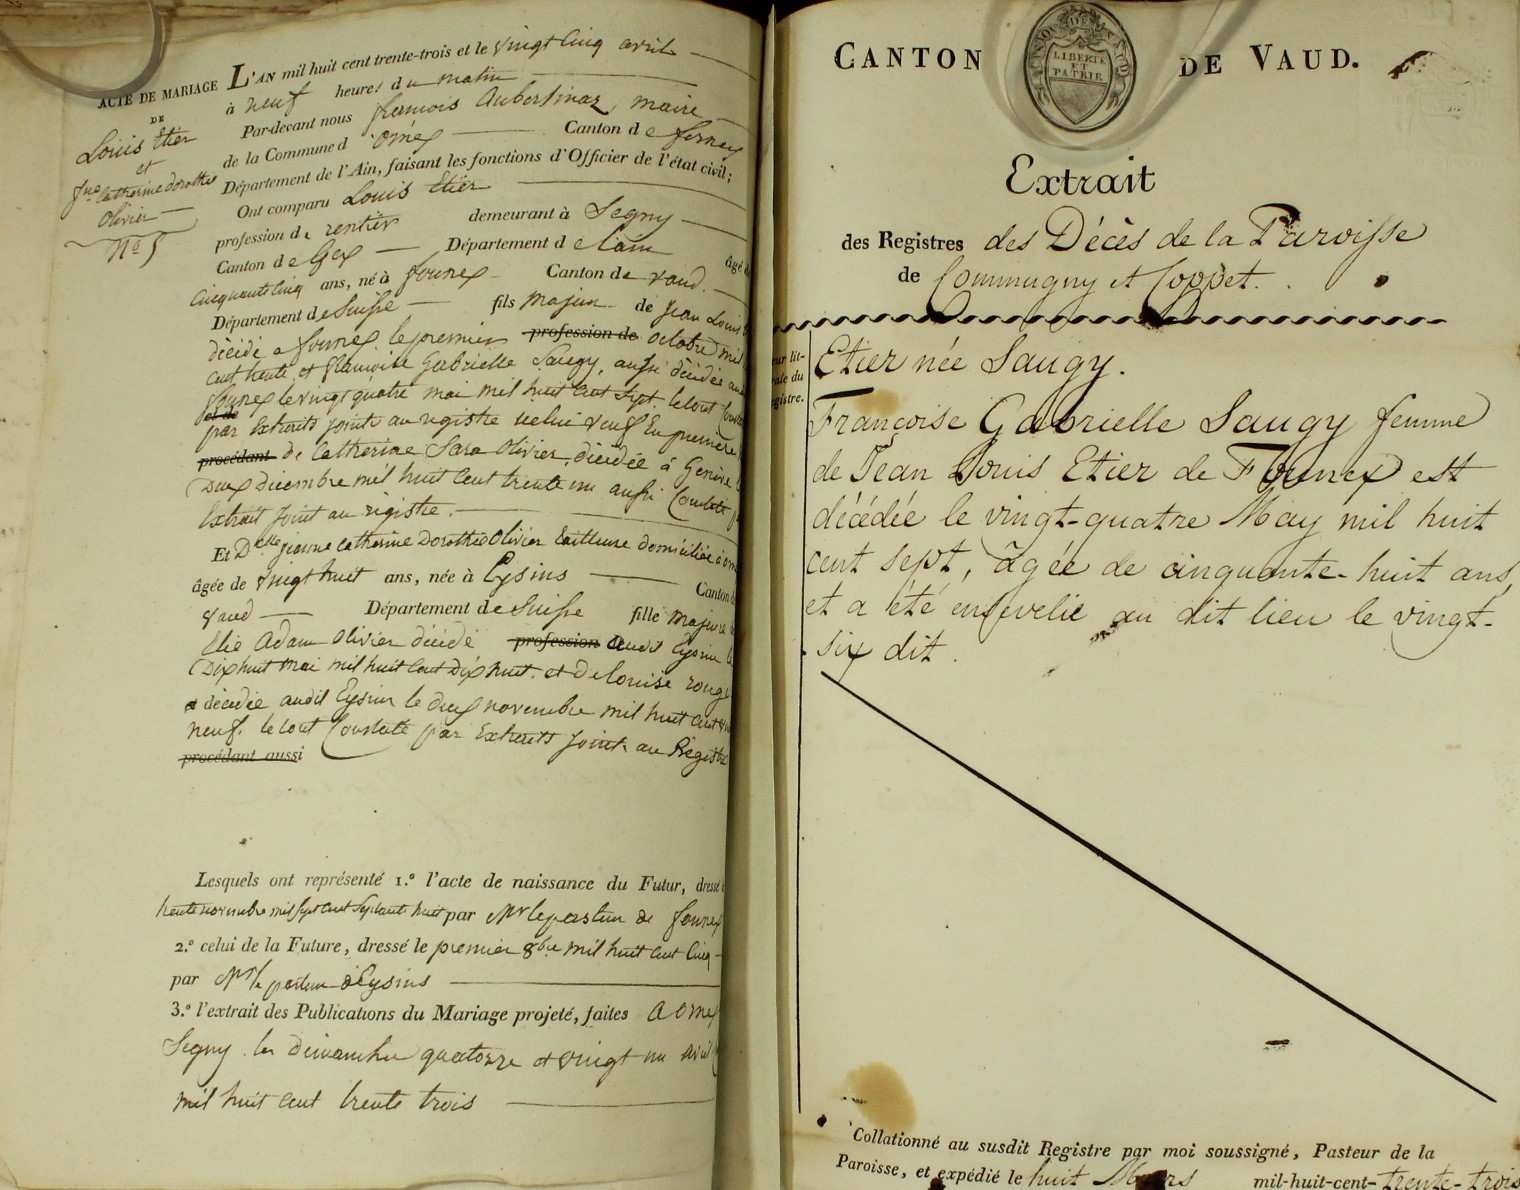 ACTE DE MARIAGE
DE
Louis Etier
et
Jne Catherine Dorothée
Olivier
N° 5
L'AN mil huit cent trente-trois et le vingt cinq avril
à neuf heures du matin
Par-devant nous françois Aubertinaz, maire
de la Commune d'ornex Canton de ferney
Département de l'Ain, faisant les fonctions d'Officier de l'état civil;
Ont comparu Louis Etier
profession de rentier demeurant à Segny
Canton de Gex Département de l'ain âgé de
cinquante cinq ans, né à founex Canton de vaud.
Département de Suisse fils majeur de Jean Louis
décédé a founex le premier profession de octobre mil
cent trente et françoise Gabrielle Saugy, aussi décédée au
founex le vingt quatre mai mil huit cent sept. le tout
et de
par Extraits joints au registre icelui veuf En première
procédant de Catherine Sara Olivier, décédée à Genève
Deux Décembre mil huit cent trente un aussi Constaté
Extrait joint au régistre.
Et Dlle jeanne Catherine Dorothée Olivier tailleuse domiciliée à
âgée de vingt huit ans, née à Eysins Canton de
vaud Département de Suisse fille majeure
Elie Adam Olivier décédé profession audit Eysins
Dix huit mai mil huit cent Dix huit. et De louise rouge
décédée audit Eysins le deux novembre mil huit cent
neuf. le tout Constaté par Extraits joints au Régistre
procédant aussi
Lesquels ont représenté 1.° l'acte de naissance du Futur, dressé
trente novembre mil sept cent septante huit par Mr le pasteur de founex
2.° celui de la Future, dressé le premier 8bre mil huit cent cinq
par Mr le pasteur d'Eysins
3.° l'extrait des Publications du Mariage projeté, faites a ornex
Segny les Dimanches quatorze et vingt un avril
mil huit cent trente trois
CANTON DE VAUD.
LIBERTÉ
ET
PATRIE
Extrait
des Registres des Décès de la Paroisse
de Commugny et Coppet.
Etier née Saugy.
Françoise Gabrielle Saugy femme
de Jean Louis Etier de Founex est
décédée le vingt-quatre May mil huit
cent sept, âgée de cinquante-huit ans,
et a été ensevelie au dit lieu le vingt-
six dit.
Collationné au susdit Registre par moi soussigné, Pasteur de la
Paroisse, et expédié le huit Mars mil-huit-cent-trente-trois